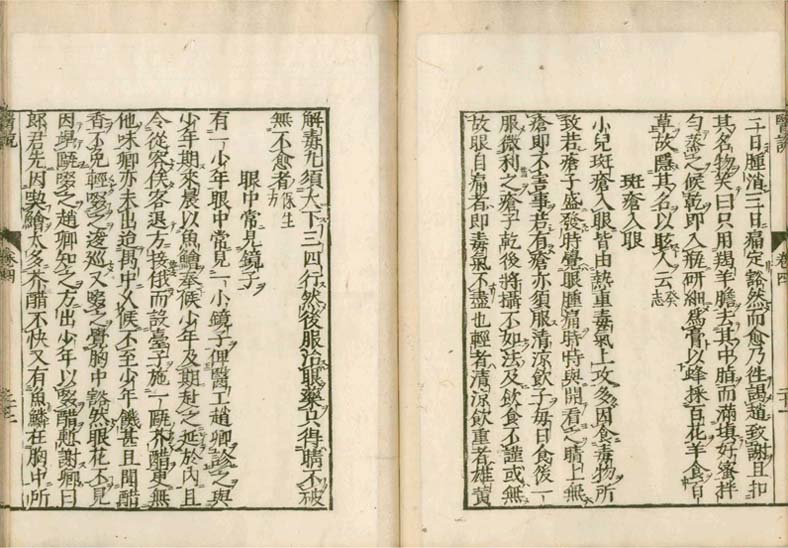 二日腫消三日痛定豁然而愈乃往謁趙致謝且扣
其名物笑曰只用羯羊膽去其中脂而滿填好蜜拌
勻蒸之候乾即入瓶研細為膏以蜂採百花羊食百
草故隱其名以眩人云癸志
斑瘡入眼
小兒斑瘡入眼皆由熱重毒氣上攻多因食毒物所
致若瘡子盛發時覺眼腫痛時時與開看之睛上無
瘡即不害事若有瘡亦須服清涼飲子每日食後一
服微利之瘡子乾後將攝不如法及飲食不謹或無
故眼自痛者即毒氣不盡也輕者清涼飲重者雄黃
解毒丸須大下三四行然後服治眼藥只得睛不破
無不愈者保生方
眼中常見鏡子
有一少年眼中常見一小鏡子俾醫工趙卿診之與
少年期來晨以魚鱠奉候少年及期赴之延於內且
令從容俟客退方接俄而設臺子施一甌芥醋更無
他味卿亦未出迨禺中久候不至少年饑甚且聞醋
香不免輕啜之逡巡又啜之覺胸中豁然眼花不見
因學瓯啜之趙卿知之方出少年以啜醋慙謝卿曰
郎君先因喫鱠太多芥醋不快又有魚鱗在胸中所
醫說
卷四
二十一
醫說
卷四